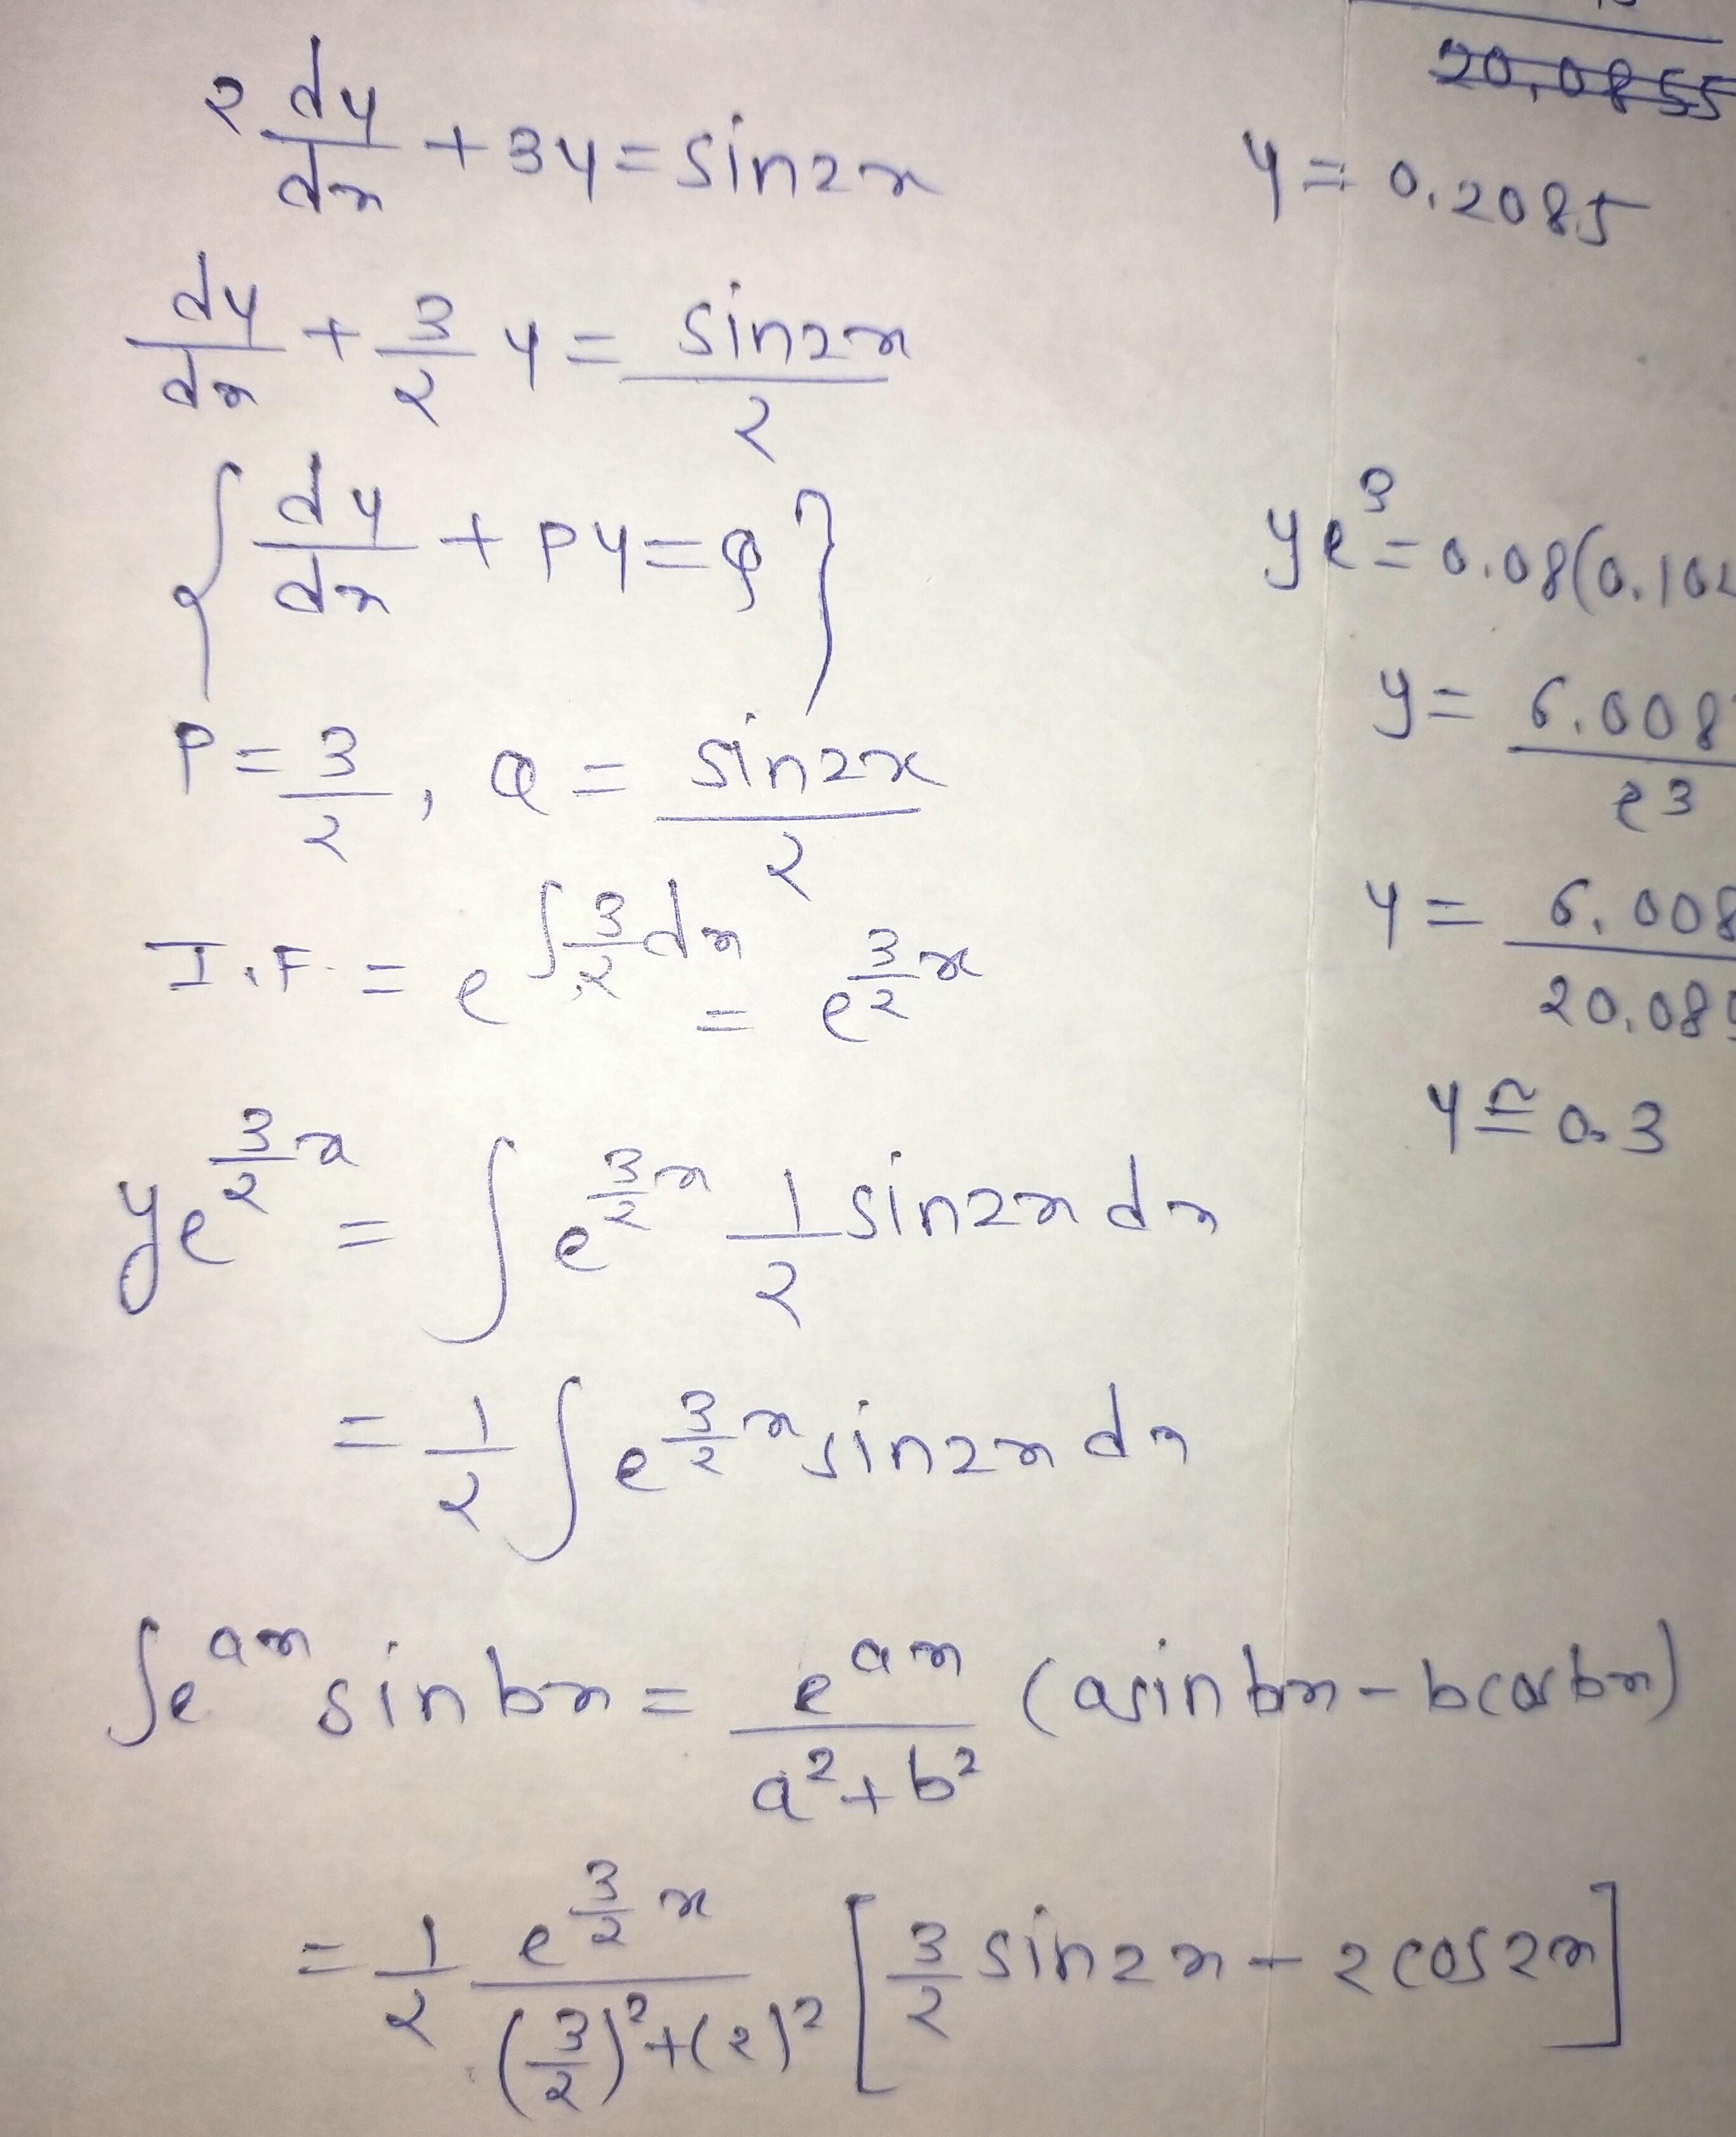 2 dy/dx + 3y = sin2x
dy/dx + 3/2 y = sin2x/2
{ dy/dx + Py = Q }
P = 3/2, Q = sin2x/2
I.F. = e^∫3/2 dx = e^3/2 x
ye^3/2 x = ∫ e^3/2 x 1/2 sin2x dx
= 1/2 ∫ e^3/2 x sin2x dx
∫e^ax sin bx = e^ax/a²+b² (asin bx - bcos bx)
= 1/2 e^3/2 x/(3/2)²+(2)² [3/2 sin2x - 2cos2x]
20.0855
y = 0.2085
ye³ = 0.08(0.10
y = 6.008/e3
y = 6.008/20.08
y ≅ 0.3